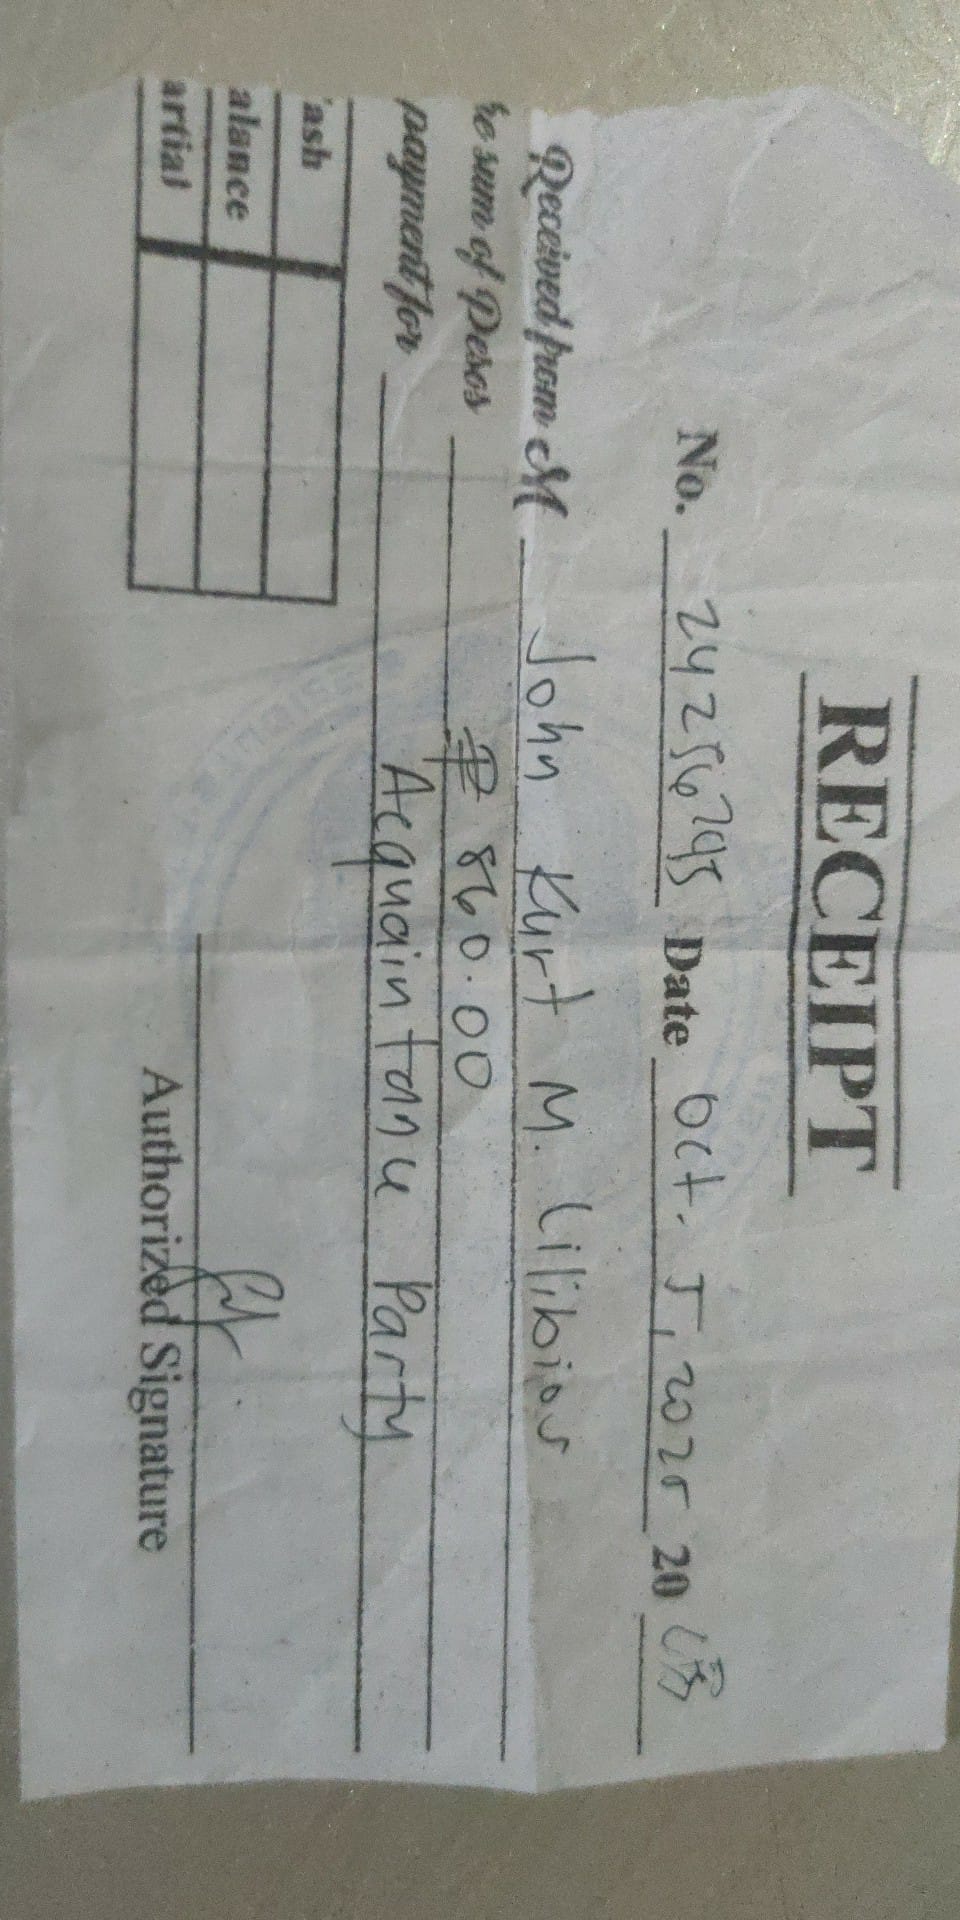 RECEIPT
No. Date Oct. 5, 2025 20
Received from M John Kurt M.
he sum of Pesos ₱ 860.00
payment for Acquaintance Party
ash
alance
artial
Authorized Signature